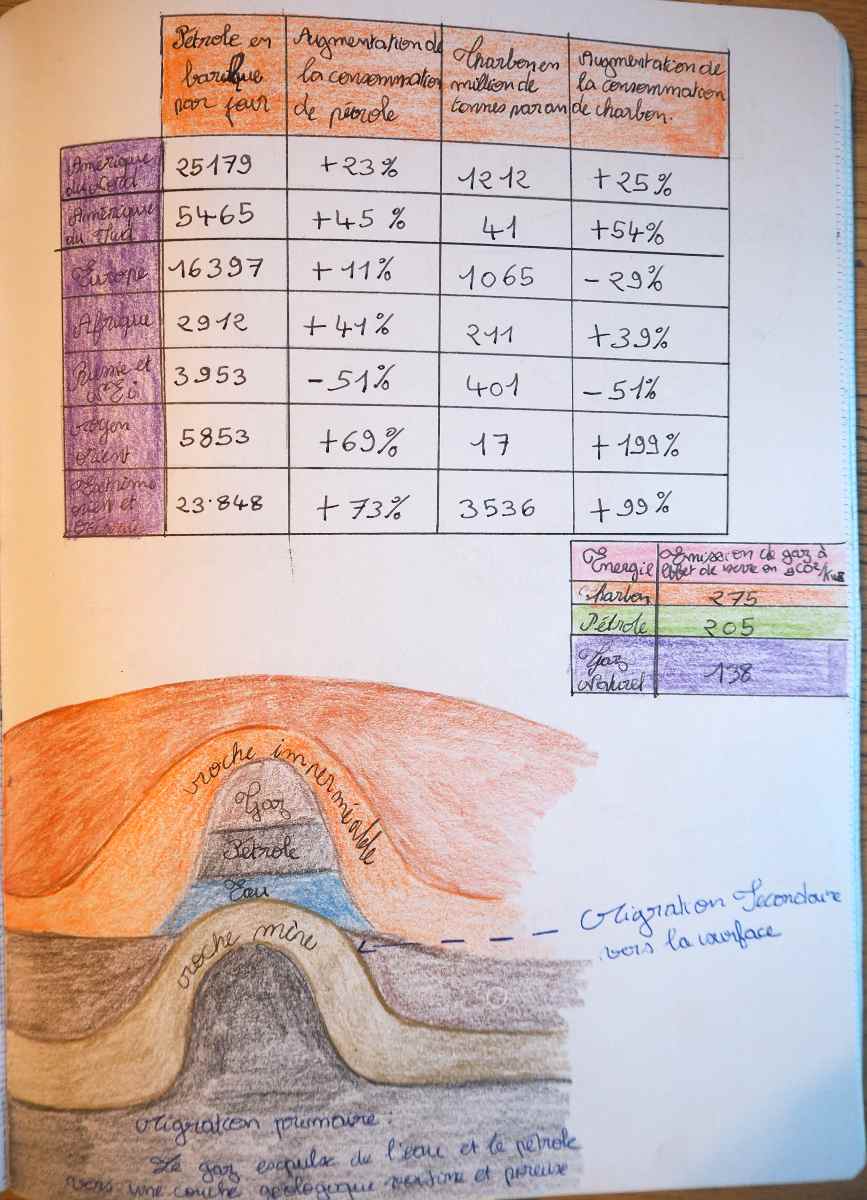 Pétrole en barique par jour | Augmentation de la consommation de pétrole | Charbon en million de tonnes par an | Augmentation de la consommation de charbon.
Amérique du Nord | 25179 | +23% | 1212 | +25%
Amérique du Sud | 5465 | +45 % | 41 | +54%
Europe | 16397 | +11% | 1065 | -29%
Afrique | 2912 | +41% | 211 | +39%
Russie et | 3953 | -51% | 401 | -51%
Moyen Orient | 5853 | +69% | 17 | +199%
Extrême orient et | 23.848 | +73% | 3536 | +99%
Energie | Emission de gaz à effet de serre en gCO2/kWh
Charbon | 275
Pétrole | 205
Gaz Naturel | 138
roche imperméable
Gaz
Pétrole
Eau
roche mère
Migration Secondaire
vers la surface
Migration primaire :
Le gaz expulse de l'eau et le pétrole
vers une couche géologique voisine et poreuse